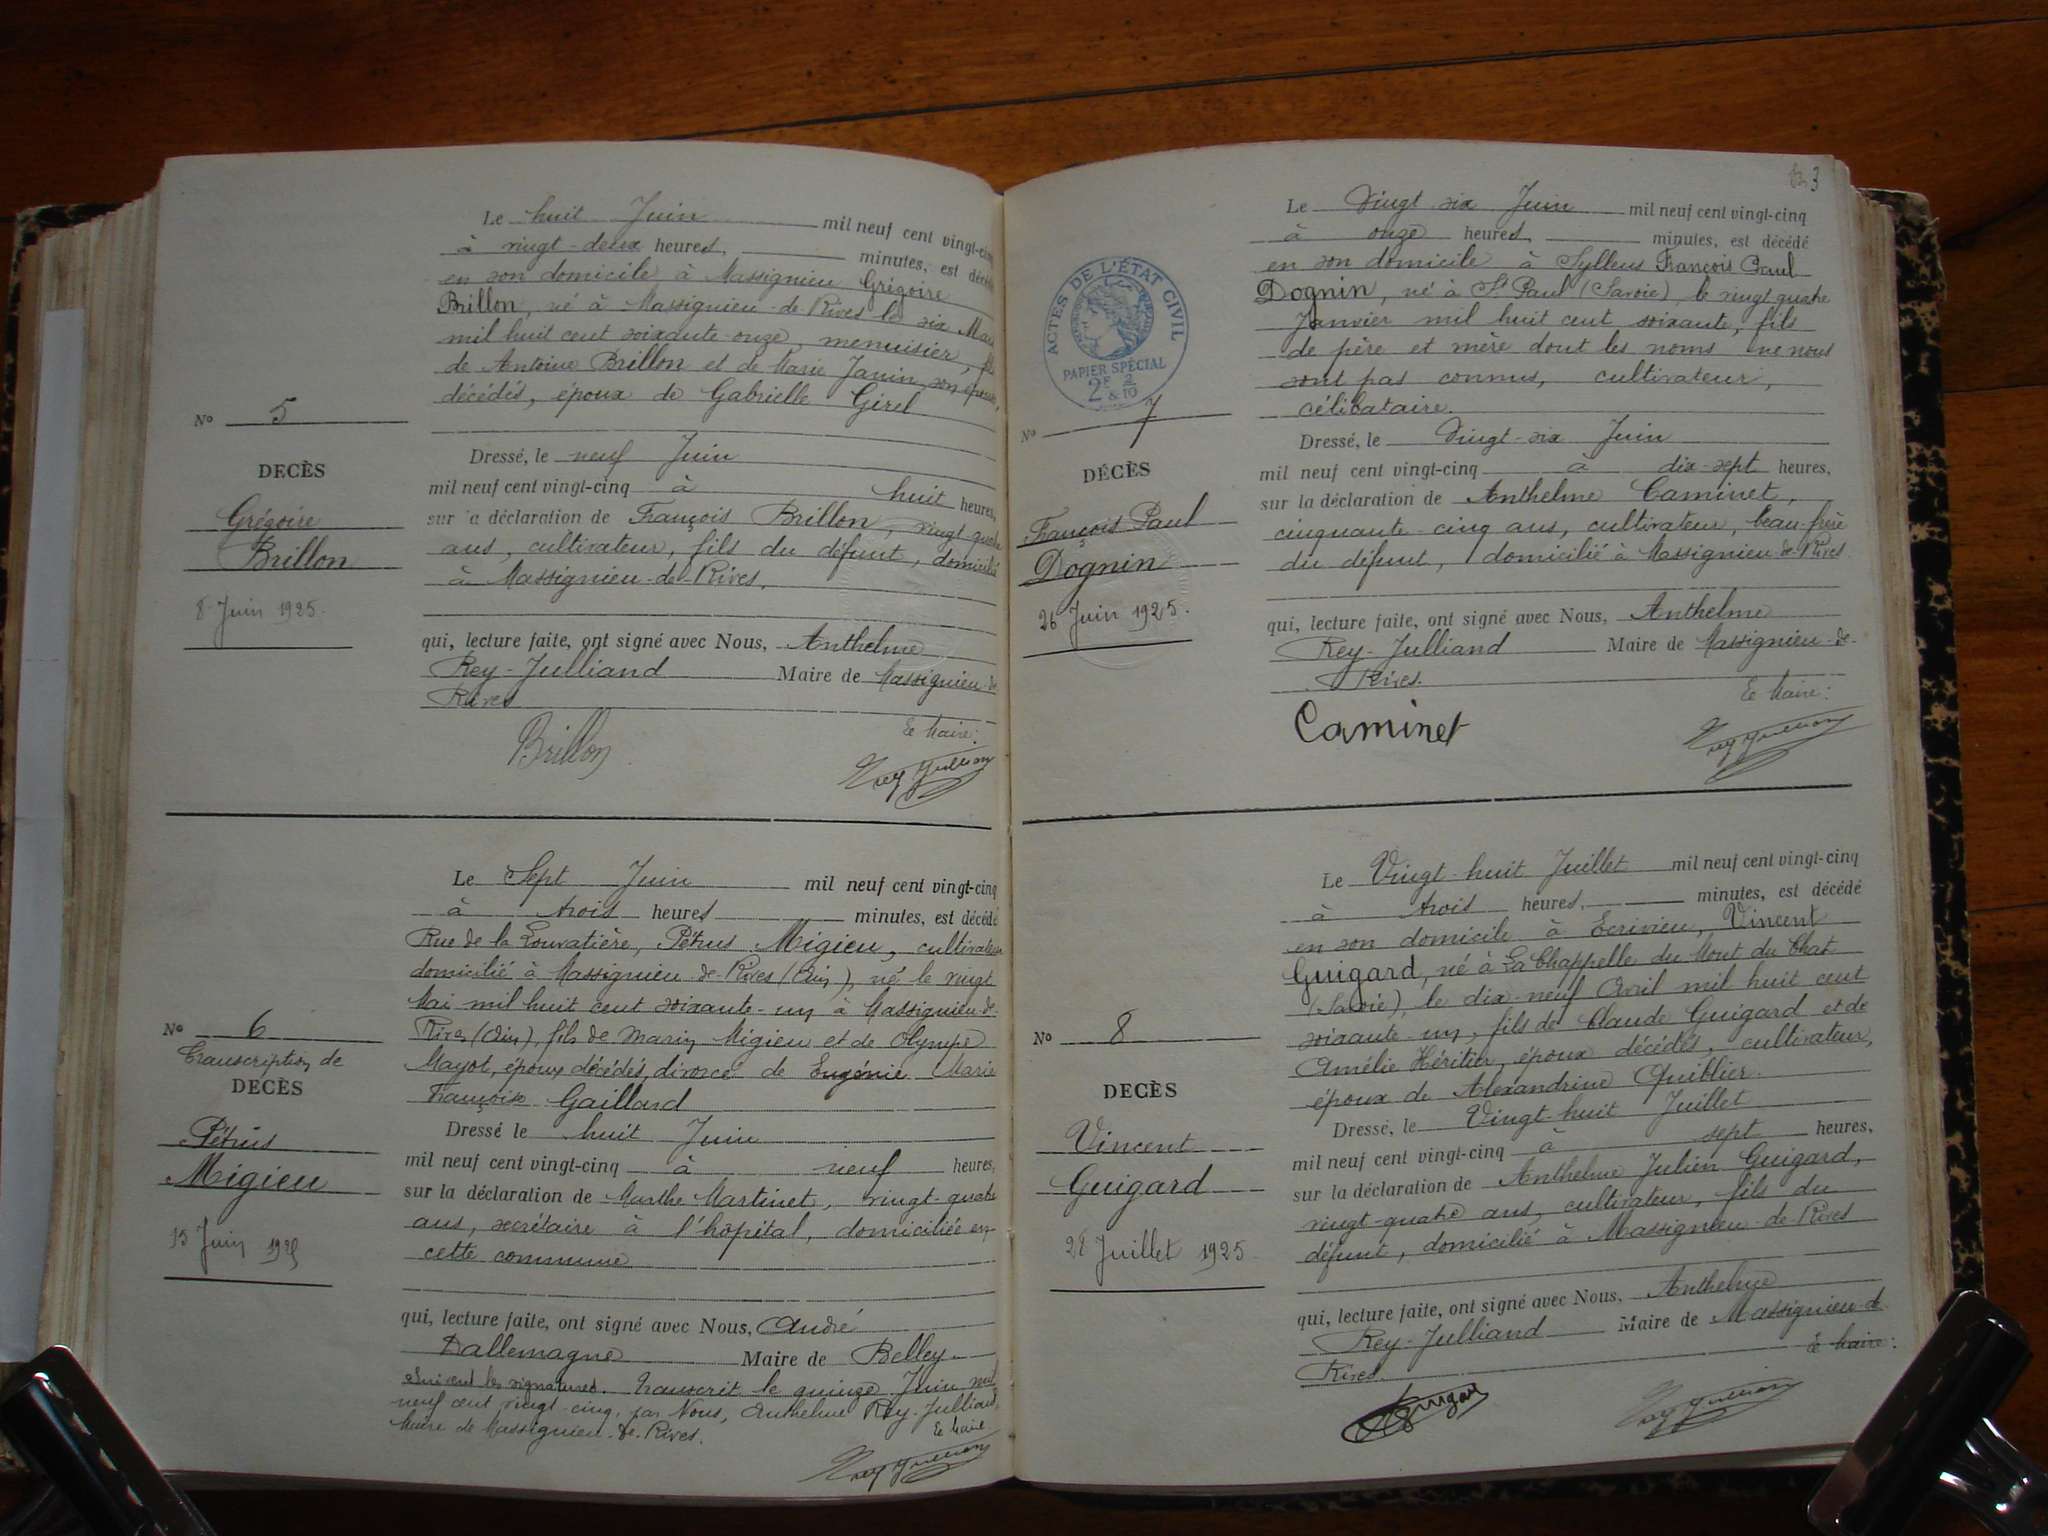 Le huit Juin mil neuf cent vingt-cinq
à vingt-deux heures, minutes, est décédé
en son domicile à Massignieu Grégoire
Brillon, né à Massignieu-de-Rives le six Mars
mil huit cent soixante-onze, menuisier, fils
de Antoine Brillon et de Marie Janin, son épouse,
décédés, époux de Gabrielle Girel
No 5
DECÈS
Grégoire
Brillon
8 Juin 1925.
Dressé, le neuf Juin
mil neuf cent vingt-cinq à huit heures,
sur la déclaration de François Brillon, vingt-quatre
ans, cultivateur, fils du défunt, domicilié
à Massignieu-de-Rives,
qui, lecture faite, ont signé avec Nous, Anthelme
Rey-Julliand Maire de Massignieu-de
Rives
Le Maire:
Brillon
Rey Julliand
Le Sept Juin mil neuf cent vingt-cinq
à trois heures minutes, est décédé
Rue de la Louvatière, Pétrus Migieu, cultivateur
domicilié à Massignieu-de-Rives (Ain), né le vingt
Mai mil huit cent soixante-un à Massignieu-de-
Rives (Ain), fils de Marin Migieu et de Olympe
Mayot, époux décédés, divorcé de Eugénie Marie
Françoise Gaillard
No 6
Transcription de
DECÈS
Pétrus
Migieu
15 Juin 1925
Dressé le huit Juin
mil neuf cent vingt-cinq à neuf heures,
sur la déclaration de Marthe Martinet, vingt-quatre
ans, secrétaire à l'hôpital, domiciliée en
cette commune
qui, lecture faite, ont signé avec Nous, André
Dallemagne Maire de Belley
Suivent les signatures. Transcrit le quinze Juin mil
neuf cent vingt-cinq, par Nous, Anthelme Rey-Julliand,
Maire de Massignieu-de-Rives.
Le Maire
Rey Julliand
3
Le Vingt-six Juin mil neuf cent vingt-cinq
à onze heures, minutes, est décédé
en son domicile à Sylleus François Paul
Dognin, né à St Paul (Savoie), le vingt quatre
Janvier mil huit cent soixante, fils
de père et mère dont les noms ne nous
sont pas connus, cultivateur,
célibataire.
ACTES DE L'ÉTAT CIVIL
PAPIER SPÉCIAL
2F & 2/10
No 7
DÉCÈS
François Paul
Dognin
26 Juin 1925.
Dressé, le Vingt-six Juin
mil neuf cent vingt-cinq à dix-sept heures,
sur la déclaration de Anthelme Caminet,
cinquante cinq ans, cultivateur, beau-frère
du défunt, domicilié à Massignieu-de-Rives
qui, lecture faite, ont signé avec Nous, Anthelme
Rey-Julliand Maire de Massignieu-de-
Rives.
Le Maire:
Caminet
Rey Julliand
Le Vingt-huit Juillet mil neuf cent vingt-cinq
à trois heures, minutes, est décédé
en son domicile à Ecrivieu, Vincent
Guigard, né à La Chappelle du Mont du Chat
(Savoie), le dix-neuf Avril mil huit cent
soixante-un, fils de Claude Guigard et de
Amélie Héritier, époux décédés, cultivateur,
époux de Alexandrine Quiblier.
No 8
DECÈS
Vincent
Guigard
28 Juillet 1925
Dressé, le Vingt-huit Juillet
mil neuf cent vingt-cinq à sept heures,
sur la déclaration de Anthelme Julien Guigard,
vingt-quatre ans, cultivateur, fils du
défunt, domicilié à Massignieu-de-Rives
qui, lecture faite, ont signé avec Nous, Anthelme
Rey-Julliand Maire de Massignieu-de
Rives.
Le Maire:
Guigard
Rey Julliand